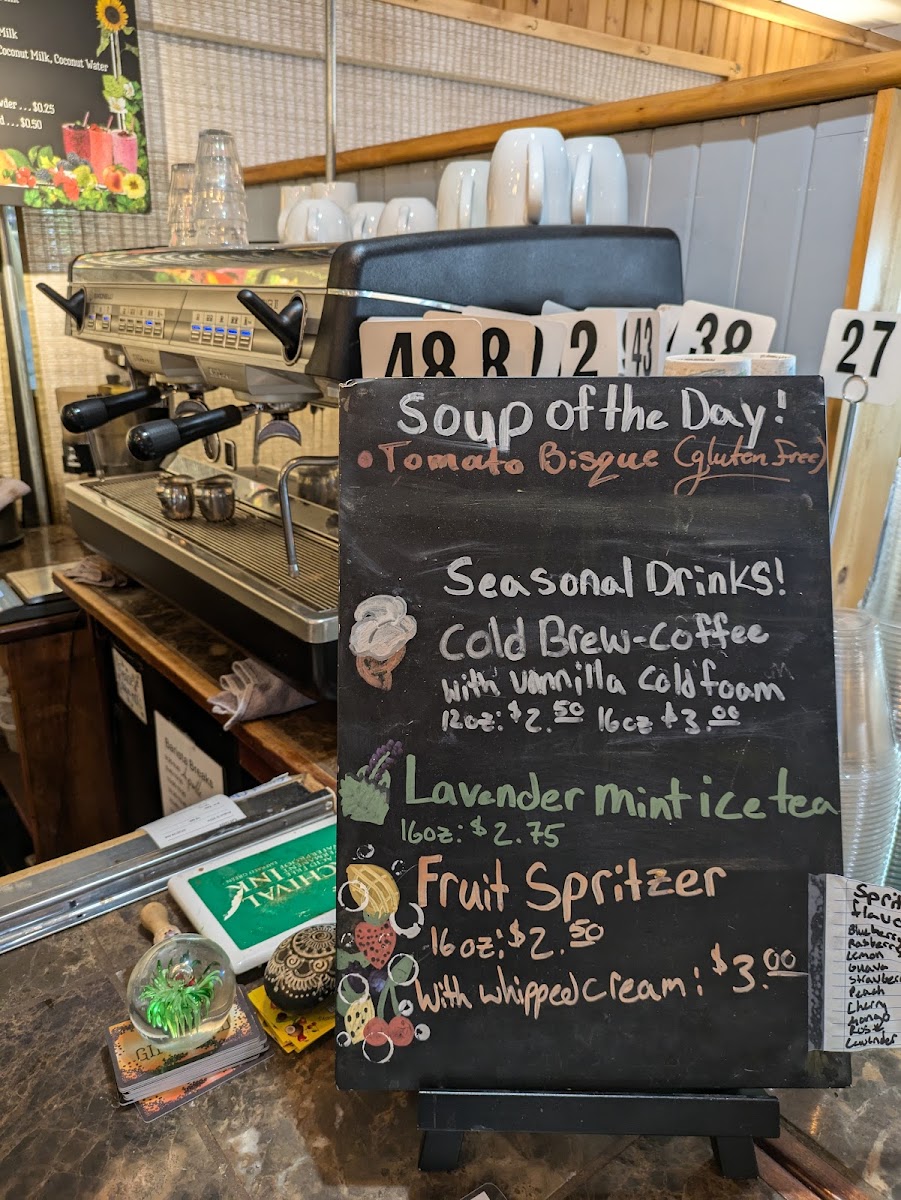 Milk
Coconut Milk, Coconut Water
wder ... $0.25
d ... $0.50
48
8
2
43
38
27
Soup of the Day!
• Tomato Bisque (gluten free)
Seasonal Drinks!
Cold Brew-Coffee
with vannilla cold foam
12oz: $2.50 16oz $3.00
Lavender mint ice tea
16oz: $2.75
Fruit Spritzer
16oz: $2.50
With whipped cream: $3.00
Sprit
flavo
Blueberry
Rasberry
Lemon
Guava
Strawber
Peach
Cherry
Mango
Rose
Lavender
Barista Breaks
RCHIVAL
INK